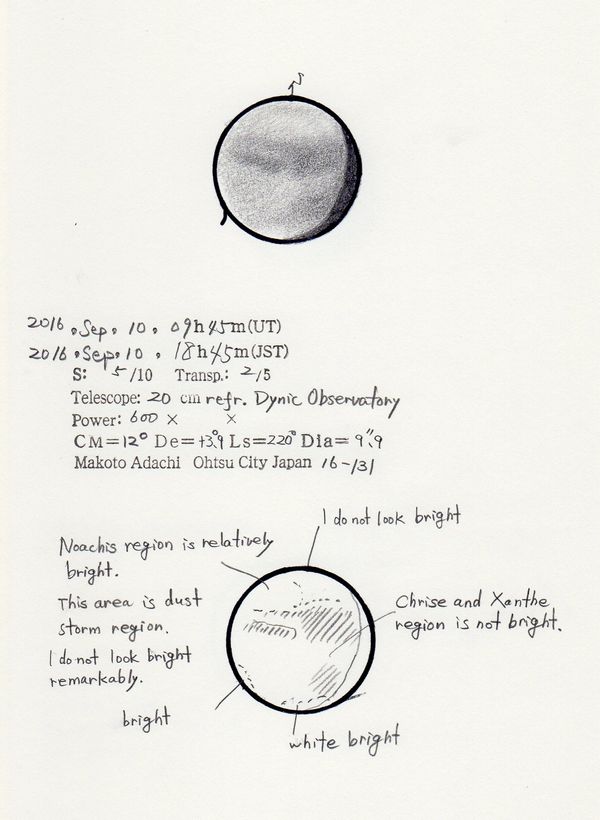 N
2016, Sep. 10. 09h45m(UT)
2016, Sep. 10. 18h45m(JST)
S: 5/10 Transp.: 2/5
Telescope: 20 cm refr. Dynic Observatory
Power: 600 × ×
CM=12° De=+3.°9 Ls=220° Dia=9."9
Makoto Adachi Ohtsu City Japan 16-131
I do not look bright
Noachis region is relatively
bright.
This area is dust
storm region.
I do not look bright
remarkably.
Chrise and Xanthe
region is not bright.
bright
white bright